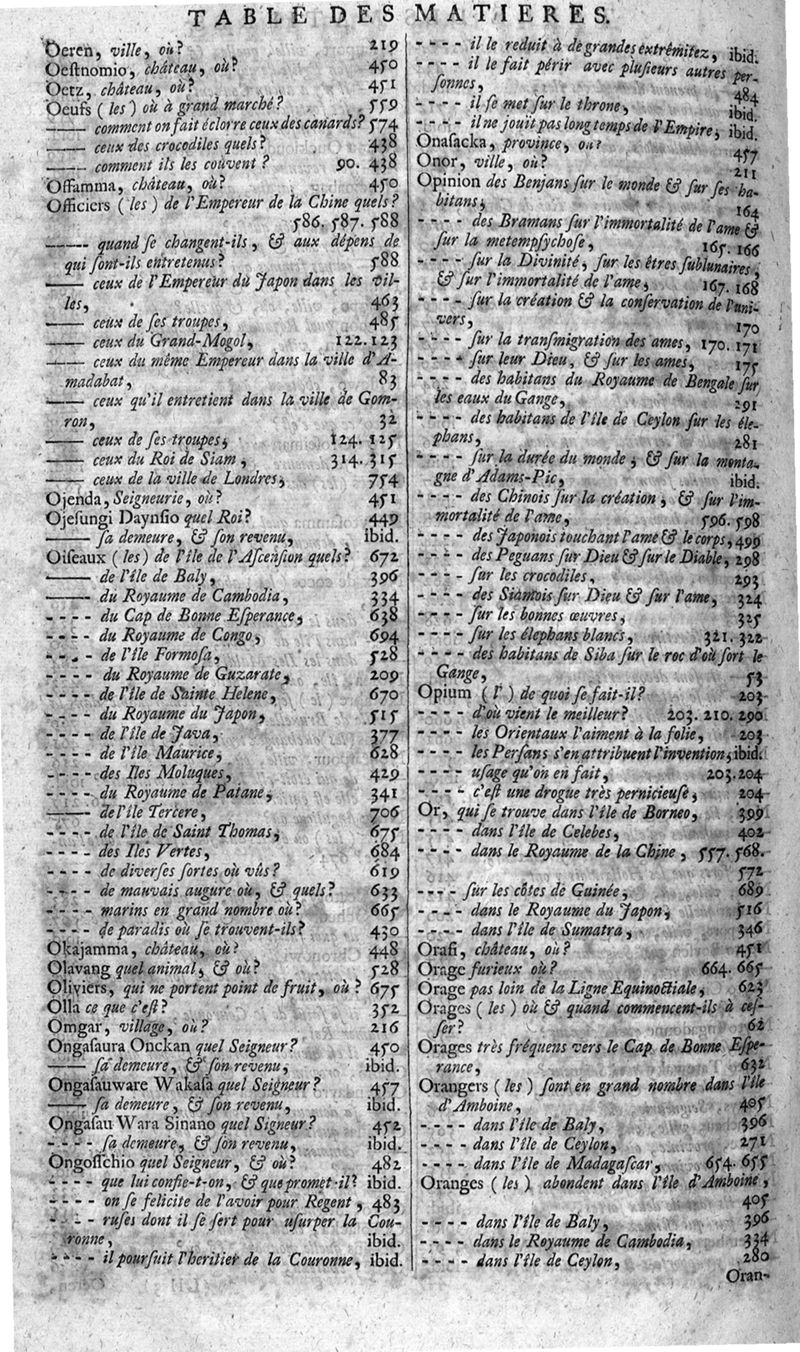 TABLE DES MATIERES.
Oeren, ville, où? 219
Oeſtnomio, château, où? 450
Oetz, château, où? 451
Oeufs (les) où à grand marché? 559
—— comment on fait éclorre ceux des canards? 574
—— ceux des crocodiles quels? 438
—— comment ils les couvent? 90. 438
Oſſamma, château, où? 450
Officiers (les) de l'Empereur de la Chine quels?
586. 587. 588
—— quand ſe changent-ils, & aux dépens de
qui ſont-ils entretenus? 588
—— ceux de l'Empereur du Japon dans les vil-
les, 463
—— ceux de ſes troupes, 485
—— ceux du Grand-Mogol, 122. 123
—— ceux du même Empereur dans la ville d'A-
madabat, 83
—— ceux qu'il entretient dans la ville de Gom-
ron, 32
—— ceux de ſes troupes, 124. 125
—— ceux du Roi de Siam, 314. 315
—— ceux de la ville de Londres, 754
Ojenda, Seigneurie, où? 451
Ojeſungi Daynſio quel Roi? 449
—— ſa demeure, & ſon revenu, ibid.
Oiſeaux (les) de l'île de l'Aſcenſion quels? 672
—— de l'île de Baly, 396
—— du Royaume de Cambodia, 334
- - - - du Cap de Bonne Eſperance, 638
- - - - du Royaume de Congo, 694
- - - - de l'île Formoſa, 528
- - - - du Royaume de Guzarate, 209
- - - - de l'île de Sainte Helene, 670
- - - - du Royaume du Japon, 515
- - - - de l'île de Java, 377
- - - - de l'île Maurice, 628
- - - - des Iles Moluques, 429
- - - - du Royaume de Patane, 341
—— de l'île Tercere, 706
- - - - de l'île de Saint Thomas, 675
- - - - des Iles Vertes, 684
- - - - de diverſes ſortes où vûs? 619
- - - - de mauvais augure où, & quels? 633
- - - - marins en grand nombre où? 665
- - - - de paradis où ſe trouvent-ils? 430
Okajamma, château, où? 448
Olavang quel animal, & où? 528
Oliviers, qui ne portent point de fruit, où? 675
Olla ce que c'eſt? 352
Omgar, village, où? 216
Ongaſaura Onckan quel Seigneur? 450
—— ſa demeure, & ſon revenu, ibid.
Ongaſauware Wakaſa quel Seigneur? 457
—— ſa demeure, & ſon revenu, ibid.
Ongaſau Wara Sinano quel Signeur? 452
- - - - ſa demeure, & ſon revenu, ibid.
Ongoſſchio quel Seigneur, & où? 482
- - - - que lui confie-t-on, & que promet-il? ibid.
- - - - on ſe felicite de l'avoir pour Regent, 483
- - - - ruſes dont il ſe ſert pour uſurper la Cou-
ronne, ibid.
- - - - il pourſuit l'heritier de la Couronne, ibid.
- - - - il le reduit à de grandes éxtrémitez, ibid.
- - - - il le fait périr avec pluſieurs autres per-
ſonnes, 484
- - - - il ſe met ſur le throne, ibid.
- - - - il ne jouit pas long temps de l'Empire, ibid.
Onaſacka, province, où? 457
Onor, ville, où? 211
Opinion des Benjans ſur le monde & ſur ſes ha-
bitans, 164
- - - - des Bramans ſur l'immortalité de l'ame &
ſur la metempſychoſe, 165. 166
- - - - ſur la Divinité, ſur les êtres ſublunaires,
& ſur l'immortalité de l'ame, 167. 168
- - - - ſur la création & la conſervation de l'uni-
vers, 170
- - - - ſur la tranſmigration des ames, 170. 171
- - - - ſur leur Dieu, & ſur les ames, 175
- - - - des habitans du Royaume de Bengale ſur
les eaux du Gange, 291
- - - - des habitans de l'île de Ceylon ſur les éle-
phans, 281
- - - - ſur la durée du monde, & ſur la monta-
gne d'Adams-Pic, ibid.
- - - - des Chinois ſur la création, & ſur l'im-
mortalité de l'ame, 596. 598
- - - - des Japonois touchant l'ame & le corps, 499
- - - - des Peguans ſur Dieu & ſur le Diable, 298
- - - - ſur les crocodiles, 293
- - - - des Siamois ſur Dieu & ſur l'ame, 324
- - - - ſur les bonnes œuvres, 325
- - - - ſur les élephans blancs, 321. 322
- - - - des habitans de Siba ſur le roc d'où ſort le
Gange, 53
Opium (l') de quoi ſe fait-il? 203
- - - - d'où vient le meilleur? 203. 210. 290
- - - - les Orientaux l'aiment à la folie, 203
- - - - les Perſans s'en attribuent l'invention, ibid.
- - - - uſage qu'on en fait, 203. 204
- - - - c'eſt une drogue très pernicieuſe, 204
Or, qui ſe trouve dans l'île de Borneo, 399
- - - - dans l'île de Celebes, 402
- - - - dans le Royaume de la Chine, 557. 568.
572
- - - - ſur les côtes de Guinée, 689
- - - - dans le Royaume du Japon, 516
- - - - dans l'île de Sumatra, 346
Oraſi, château, où? 451
Orage furieux où? 664. 665
Orage pas loin de la Ligne Equinoctiale, 623
Orages (les) où & quand commencent-ils à ceſ-
ſer? 62
Orages très fréquens vers le Cap de Bonne Eſpe-
rance, 632
Orangers (les) ſont en grand nombre dans l'île
d'Amboine, 405
- - - - dans l'île de Baly, 396
- - - - dans l'île de Ceylon, 271
- - - - dans l'île de Madagaſcar, 654. 655
Oranges (les) abondent dans l'île d'Amboine,
405
- - - - dans l'île de Baly, 396
- - - - dans le Royaume de Cambodia, 334
- - - - dans l'île de Ceylon, 280
Oran-